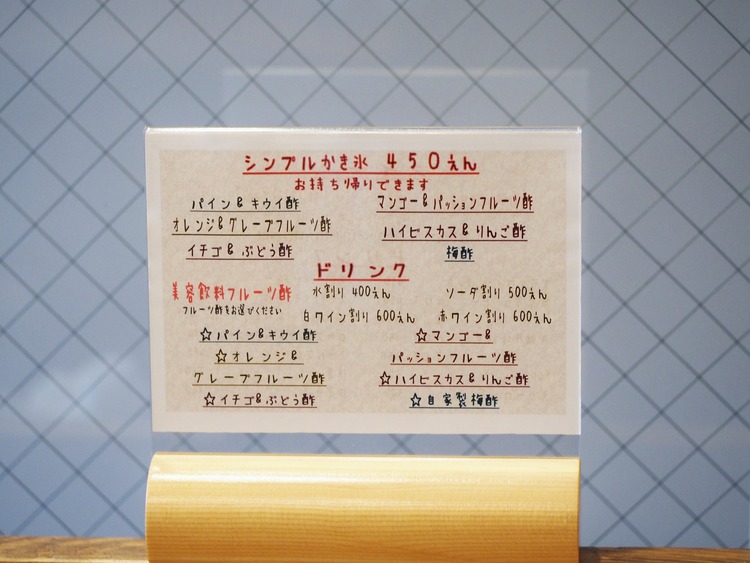 シンプルかき氷 450えん
お持ち帰りできます
パイン&キウイ酢
マンゴー&パッションフルーツ酢
オレンジ&グレープフルーツ酢
ハイビスカス&りんご酢
イチゴ&ぶどう酢
梅酢
ドリンク
美容飲料フルーツ酢
水割り 400えん
ソーダ割り 500えん
フルーツ酢をお選びください
白ワイン割り 600えん
赤ワイン割り 600えん
☆パイン&キウイ酢
☆オレンジ&
グレープフルーツ酢
☆イチゴ&ぶどう酢
☆マンゴー&
パッションフルーツ酢
☆ハイビスカス&りんご酢
☆自家製梅酢